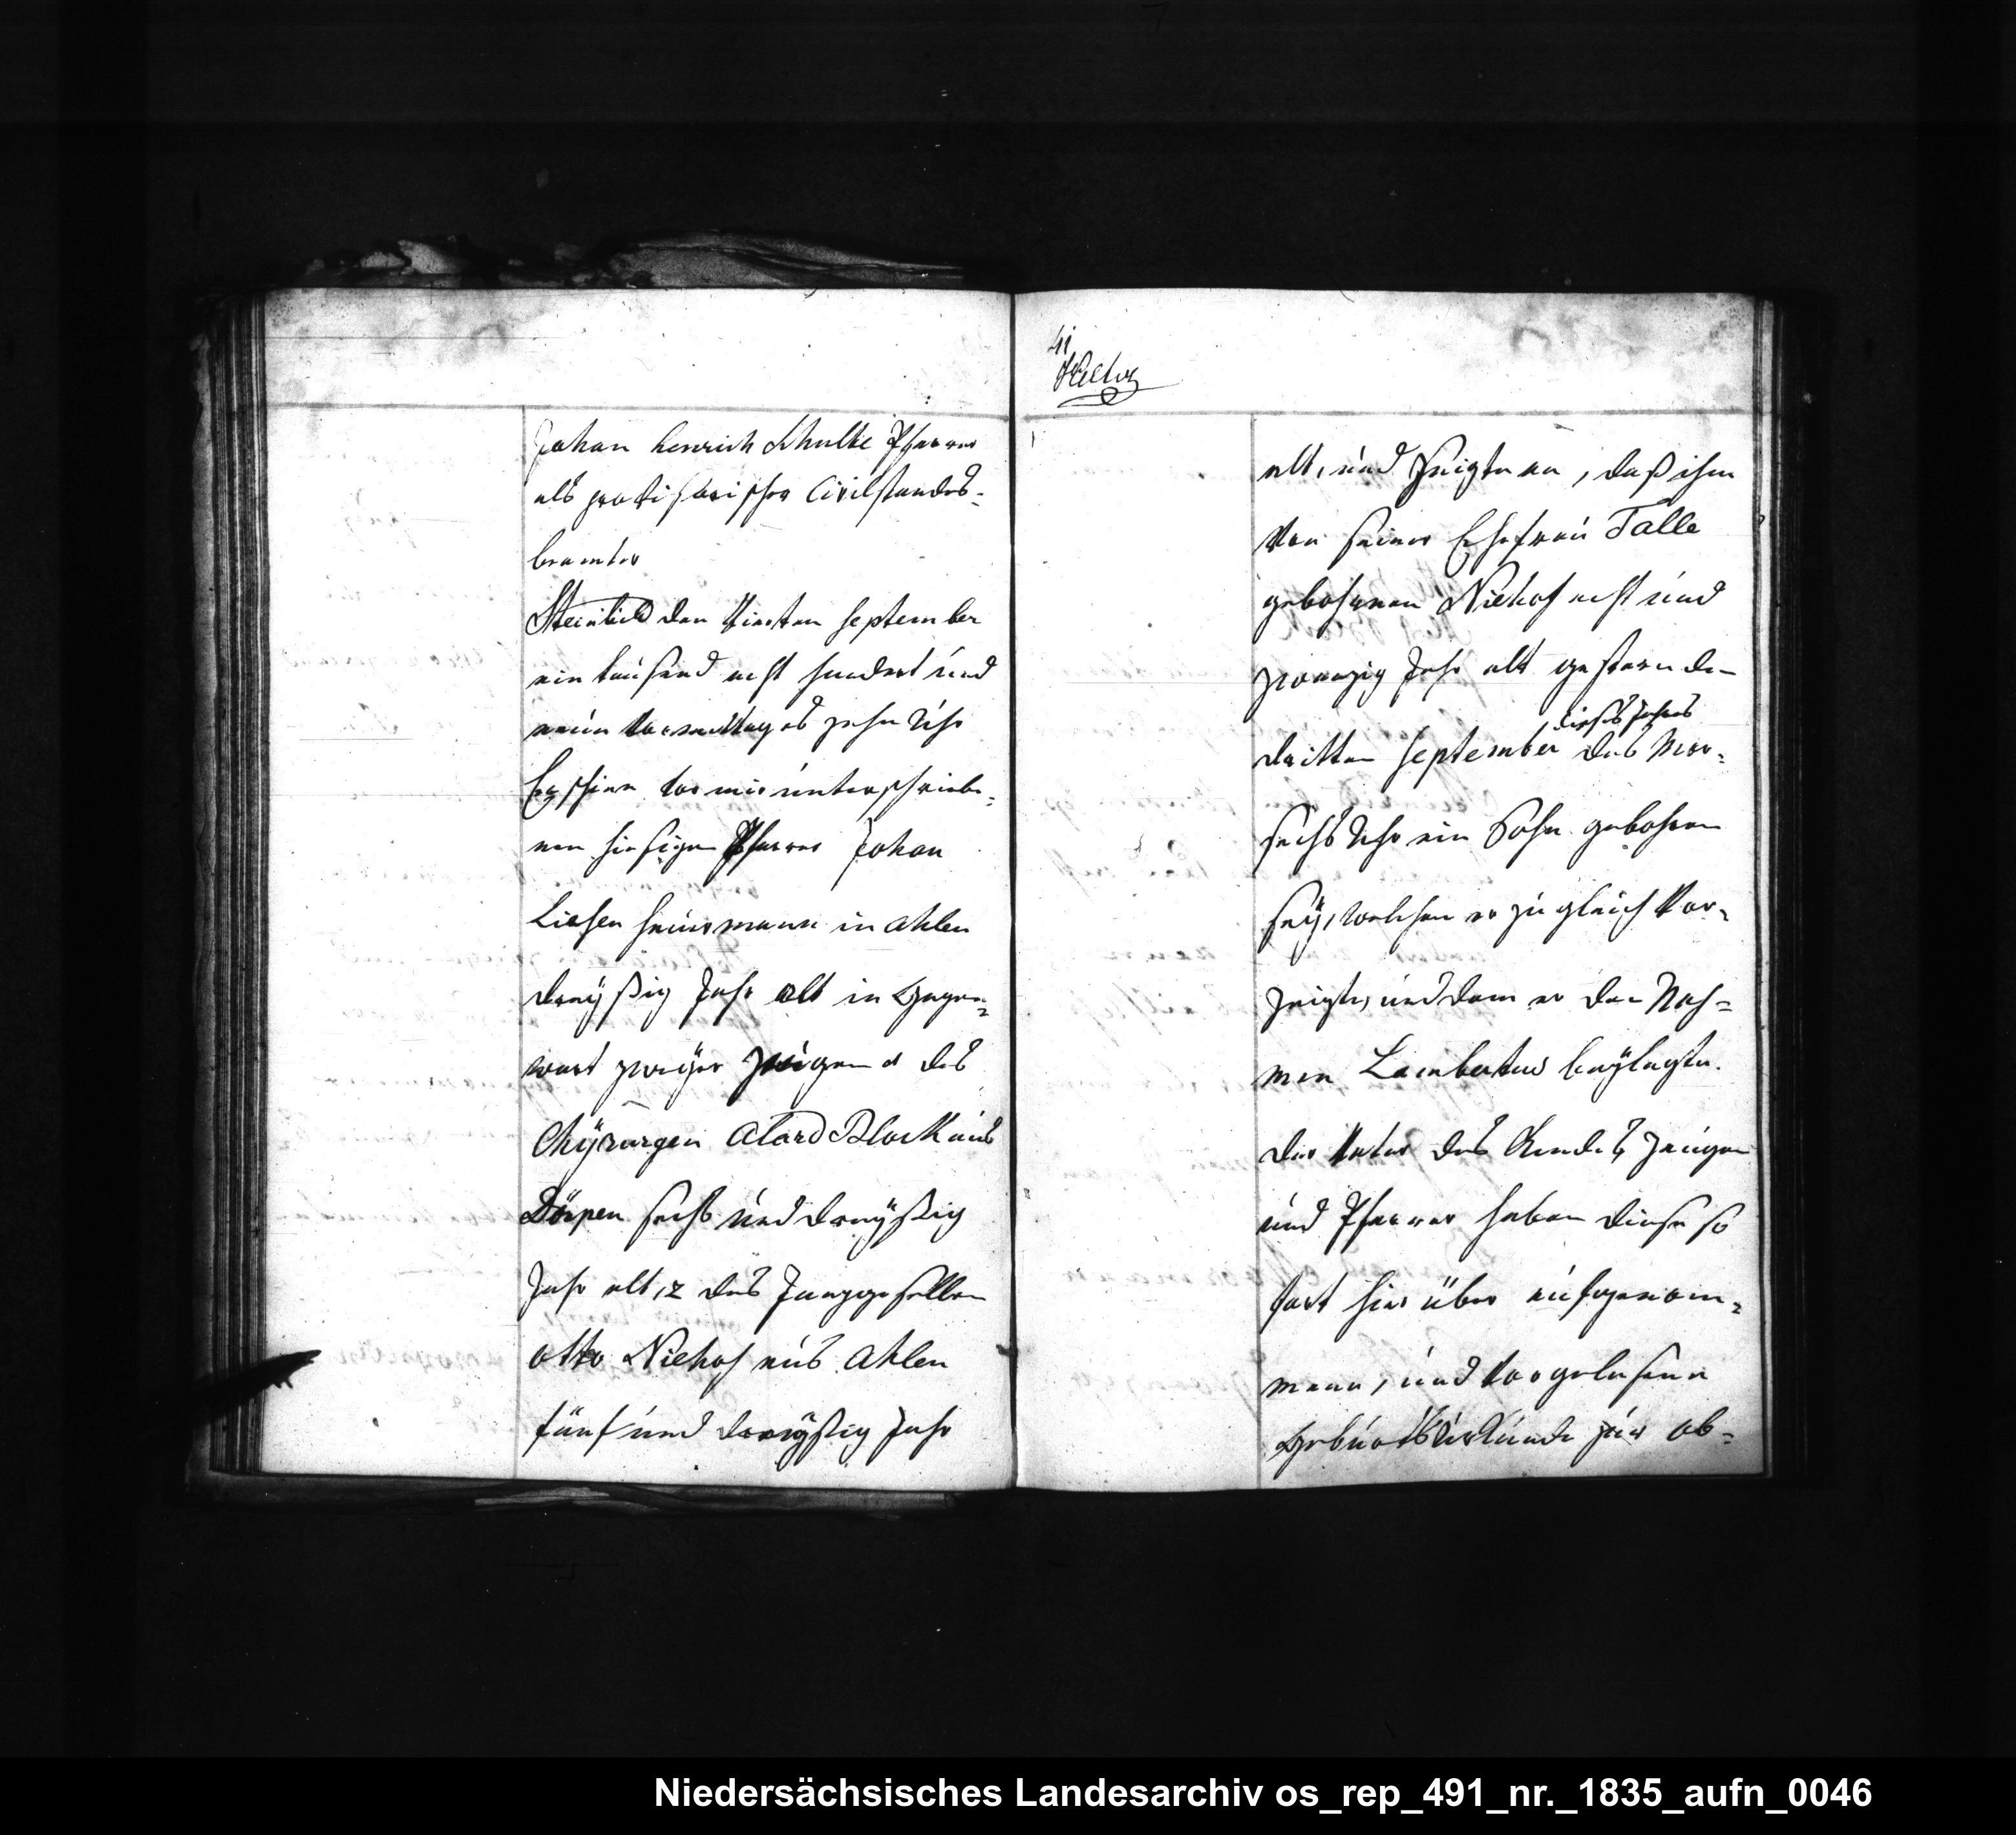 Johan henrich Schulte Pfarrer
als provisorischer Civilstandes-
beamter
Steinbild den Vierten September
ein tausend acht hundert und
neun Vormittags zehn Uhr
Erschien vor mir unterschriebe-
nen hiesigen Pfarrer Johan
Liesen heuermann in Ahlen
dreyßig Jahr alt in Gegen-
wart zweyer Zeugen des
Chyrurgen Alard Block aus
Dörpen sechs und dreyßig
Jahr alt, 2 des Junggesellen
otto Niehof aus Ahlen
fünf und dreyßig Jahr
41
alt, und zeigte an, daß ihm
Von seiner Ehefrau Talle
gebohrnen Niehof acht und
zwanzig Jahr alt gestern den
dieses Jahres
dritten September des Mor-
sechs Uhr ein Sohn gebohren
sey, welchen er zugleich Vor-
zeigte, und dem er den Nah-
men Lambertus beylegte.
der Vater des Kindes, Zeugen
und Pfarrer haben diese so
fort hier über aufgenom-
mene, und vorgelesene
Geburtsurkunde zur ob-
Niedersächsisches Landesarchiv os_rep_491_nr._1835_aufn_0046